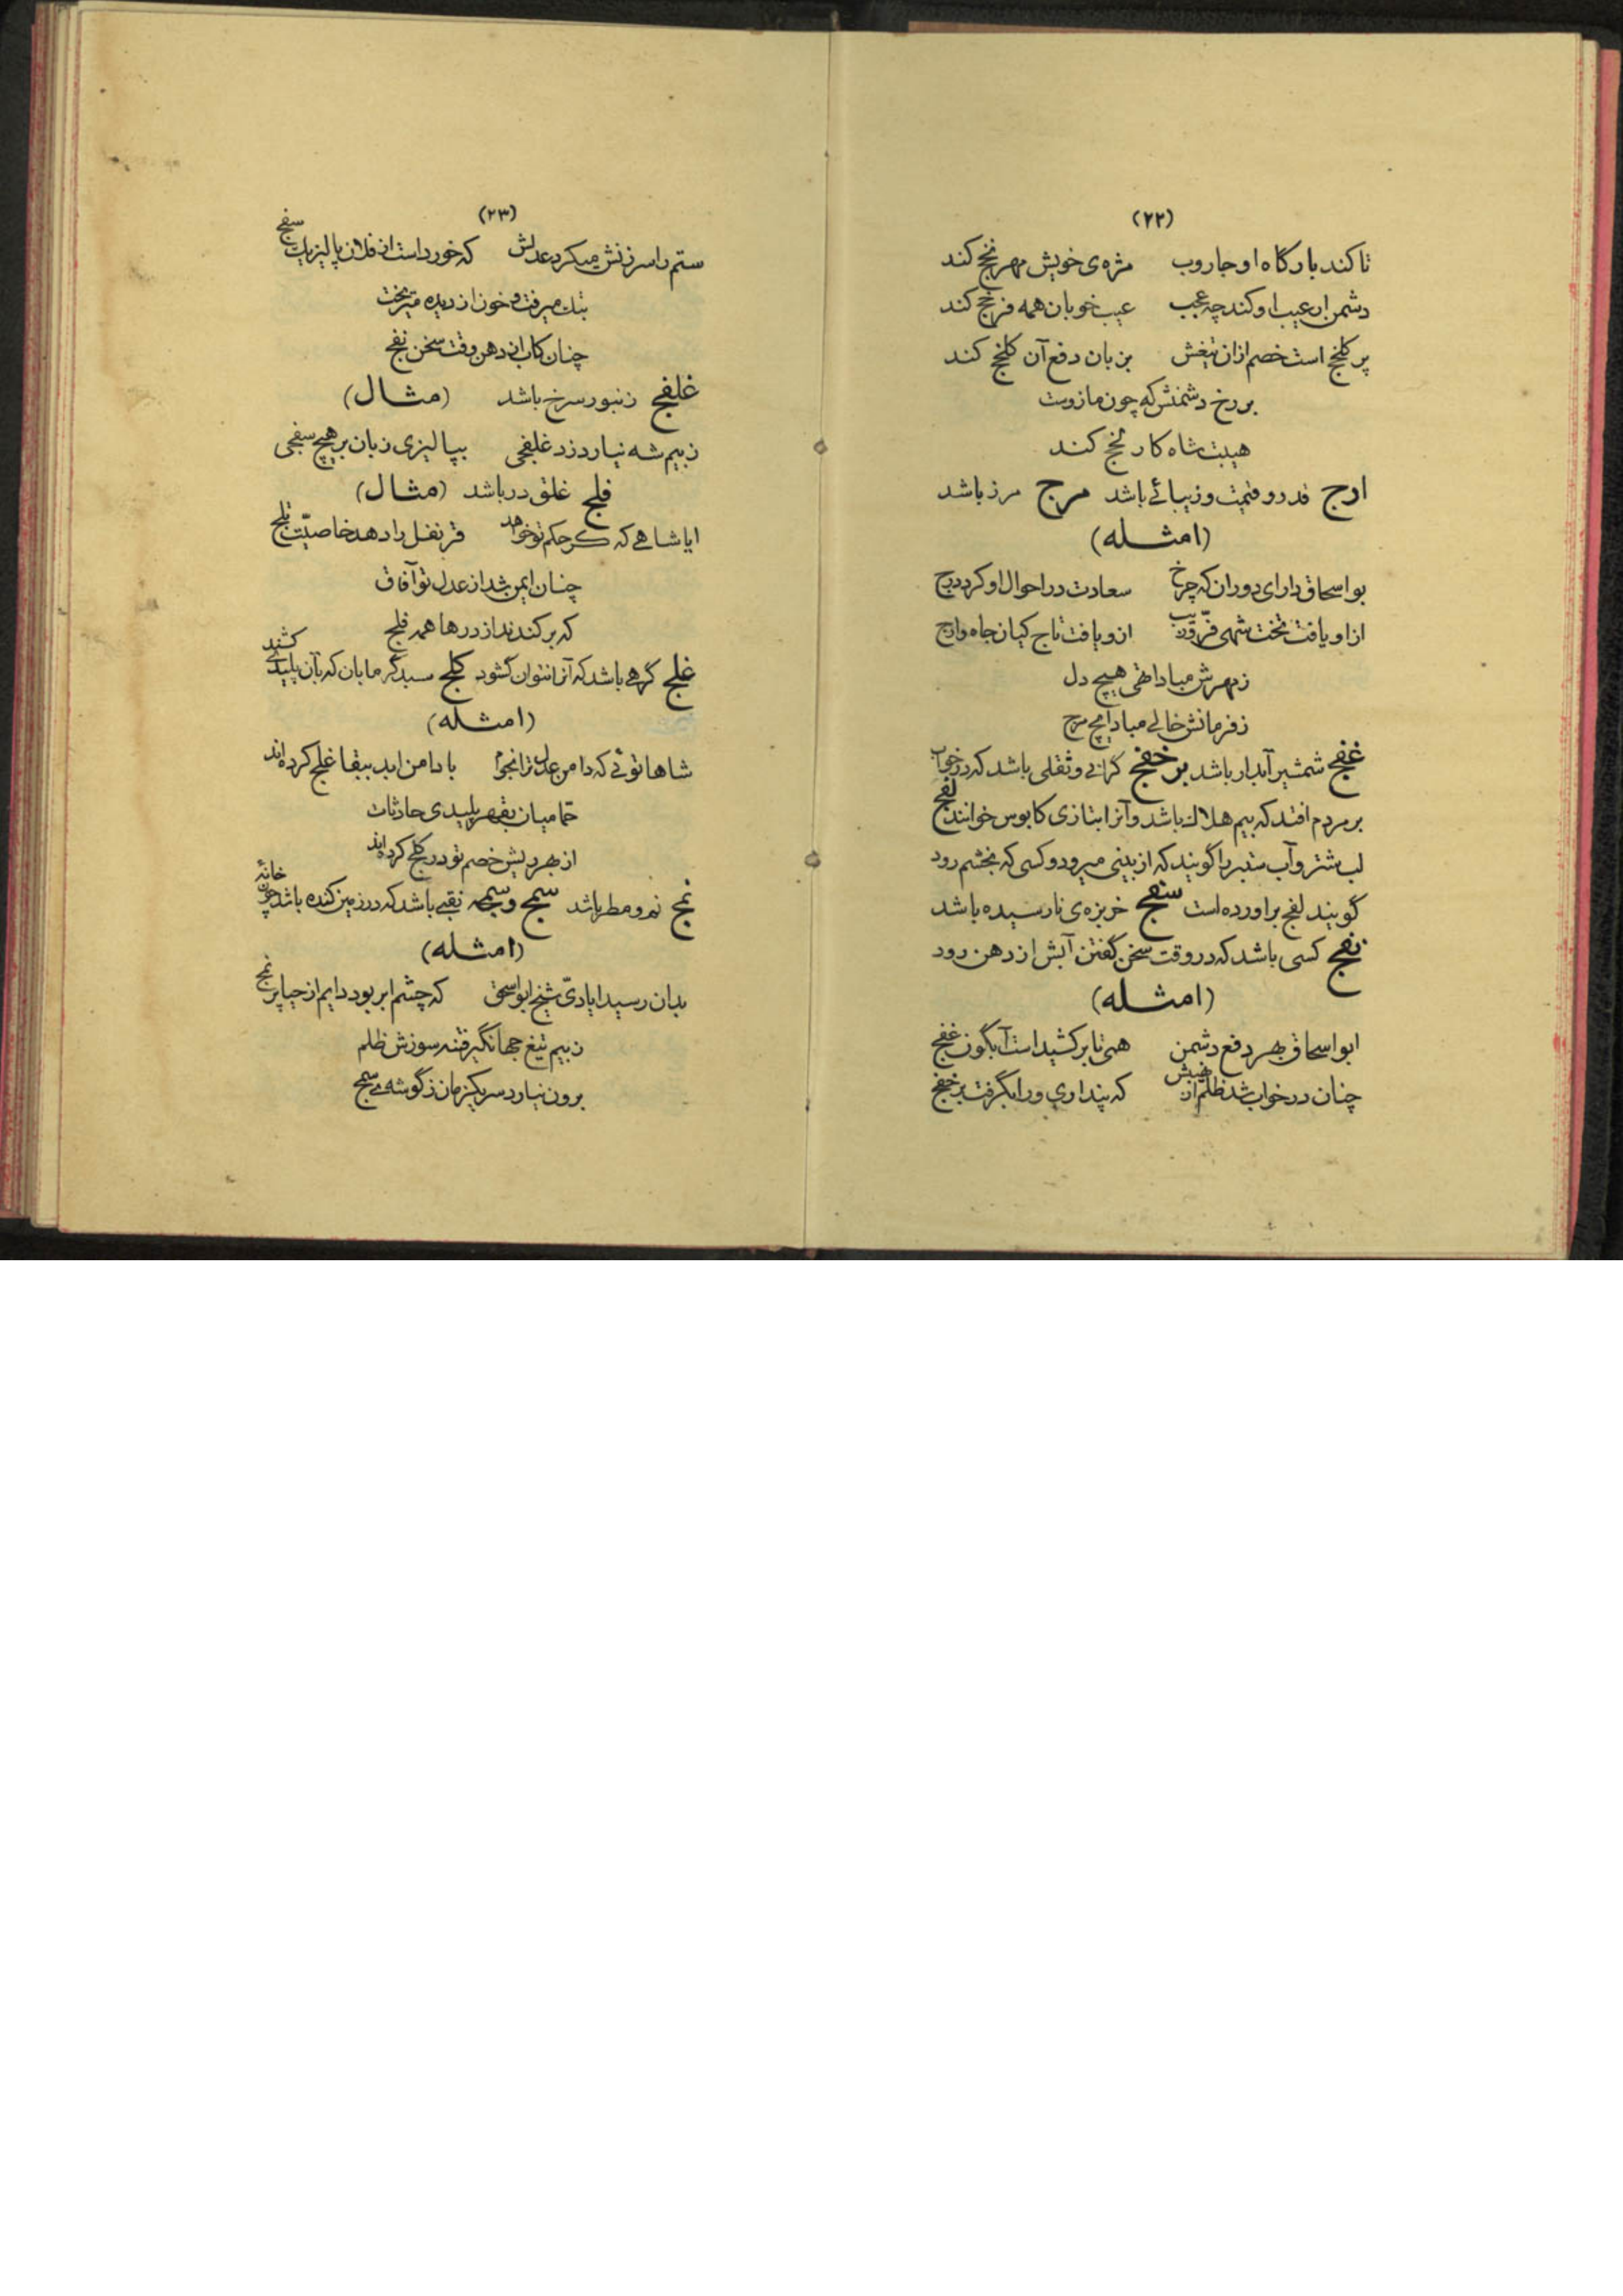 (۲۲)
تا کند بارگاه او جاروب مژه‌ی خویش مهر نخج کند
دشمن ار عیب او کند چه عجب عیب خوبان همه فرخج کند
پر کلخج است خصم ازان تیغش بزبان دفع آن کلخج کند
بر رخ دشمنش که چون مازوست
هیبت شاه کار لخج کند
ارج قدر و قیمت و زیبائے باشد مرج مرز باشد
(امثله)
بو اسحاق دارای دوران که چرخ سعادت در احوال او کرد درج
ازاو یافت تخت شهی فرّ و زیب ازو یافت تاج کیان جاه و ارج
ز مهرش مبادا تهی هیچ دل
ز فرمانش خالے مبادا هیچ مرج
غفج شمشیر آبدار باشد برخفج گرانے و ثقلی باشد که در خواب
بر مردم افتد که بیم هلاك باشد و آنرا بتازی کابوس خوانند لفج
لب شتر و آب ستبر را گویند که از بینی میرود و کسی که بخشم رود
گویند لفج براورده است سفج خربزه‌ی نارسیده باشد
نفج کسی باشد که در وقت سخن گفتن آبش از دهن رود
(امثله)
ابو اسحاق بهر دفع دشمن همی تا برکشیداست آبگون غفج
چنان در خواب شد ظلم از نهیبش که پنداری ورا بگرفت برخفج
(۲۳)
ستم را سرزنش میکرد عدلش که خورداست از فلان پالیز یك سفج
بتك میرفت و خون از دیده میریخت
چنان کاب از دهن وقت سخن نفج
غلفج زنبور سرخ باشد (مثال)
ز بیم شه نیارد زد غلفجی بپالیزی زبان بر هیچ سفجی
فلج غلق در باشد (مثال)
ایا شاهے که گر حکم تو خواهد قرنفل را دهد خاصیّت تلج
چنان ایمن شد از عدل تو آفاق
که برکندند از درها همه فلج
غلج گرهے باشد که آنرا نتوان گشود کلج سبد گرمابان که بآن پلیدے کشند
(امثله)
شاها توئے که دامن عدل ترا نجوم با دامن ابد ببقا غلج کرده‌اند
حمامیان بقهر پلیدی حادثات
از بهر ریش خصم تو در کلج کرده‌اند
نمج نم و مطر باشد سمج و سمجه نقبے باشد که در زمین کنده باشد چون خانهٔ
(امثله)
بدان رسید ایادیّ شیخ ابو اسحق که چشم ابر بود دایم از حیا پر نمج
ز بیم تیغ جهانگیر فتنه سوزش ظلم
برون نیارد سر یکزمان ز گوشه‌ے سمج